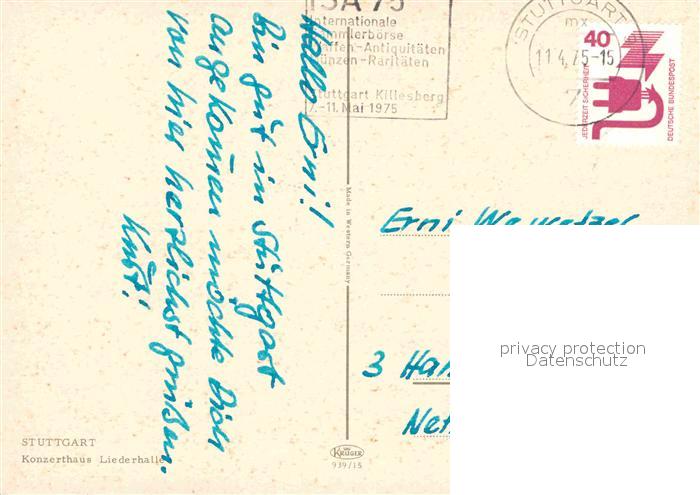 ISA 75
Internationale
Sammlerbörse
Waffen-Antiquitäten
Münzen-Raritäten
Stuttgart Killesberg
7.-11. Mai 1975
STUTTGART
mx
11.4.75-15
7
40
JEDERZEIT SICHERHEIT
DEUTSCHE BUNDESPOST
Hallo Erni!
Bin gut in Stuttgart
angekommen möchte Dich
von hier herzlichst grüßen.
Knut!
Made in Western-Germany
Erni
3 Han
Net
privacy protection
Datenschutz
STUTTGART
Konzerthaus Liederhalle
KRÜGER
939/15